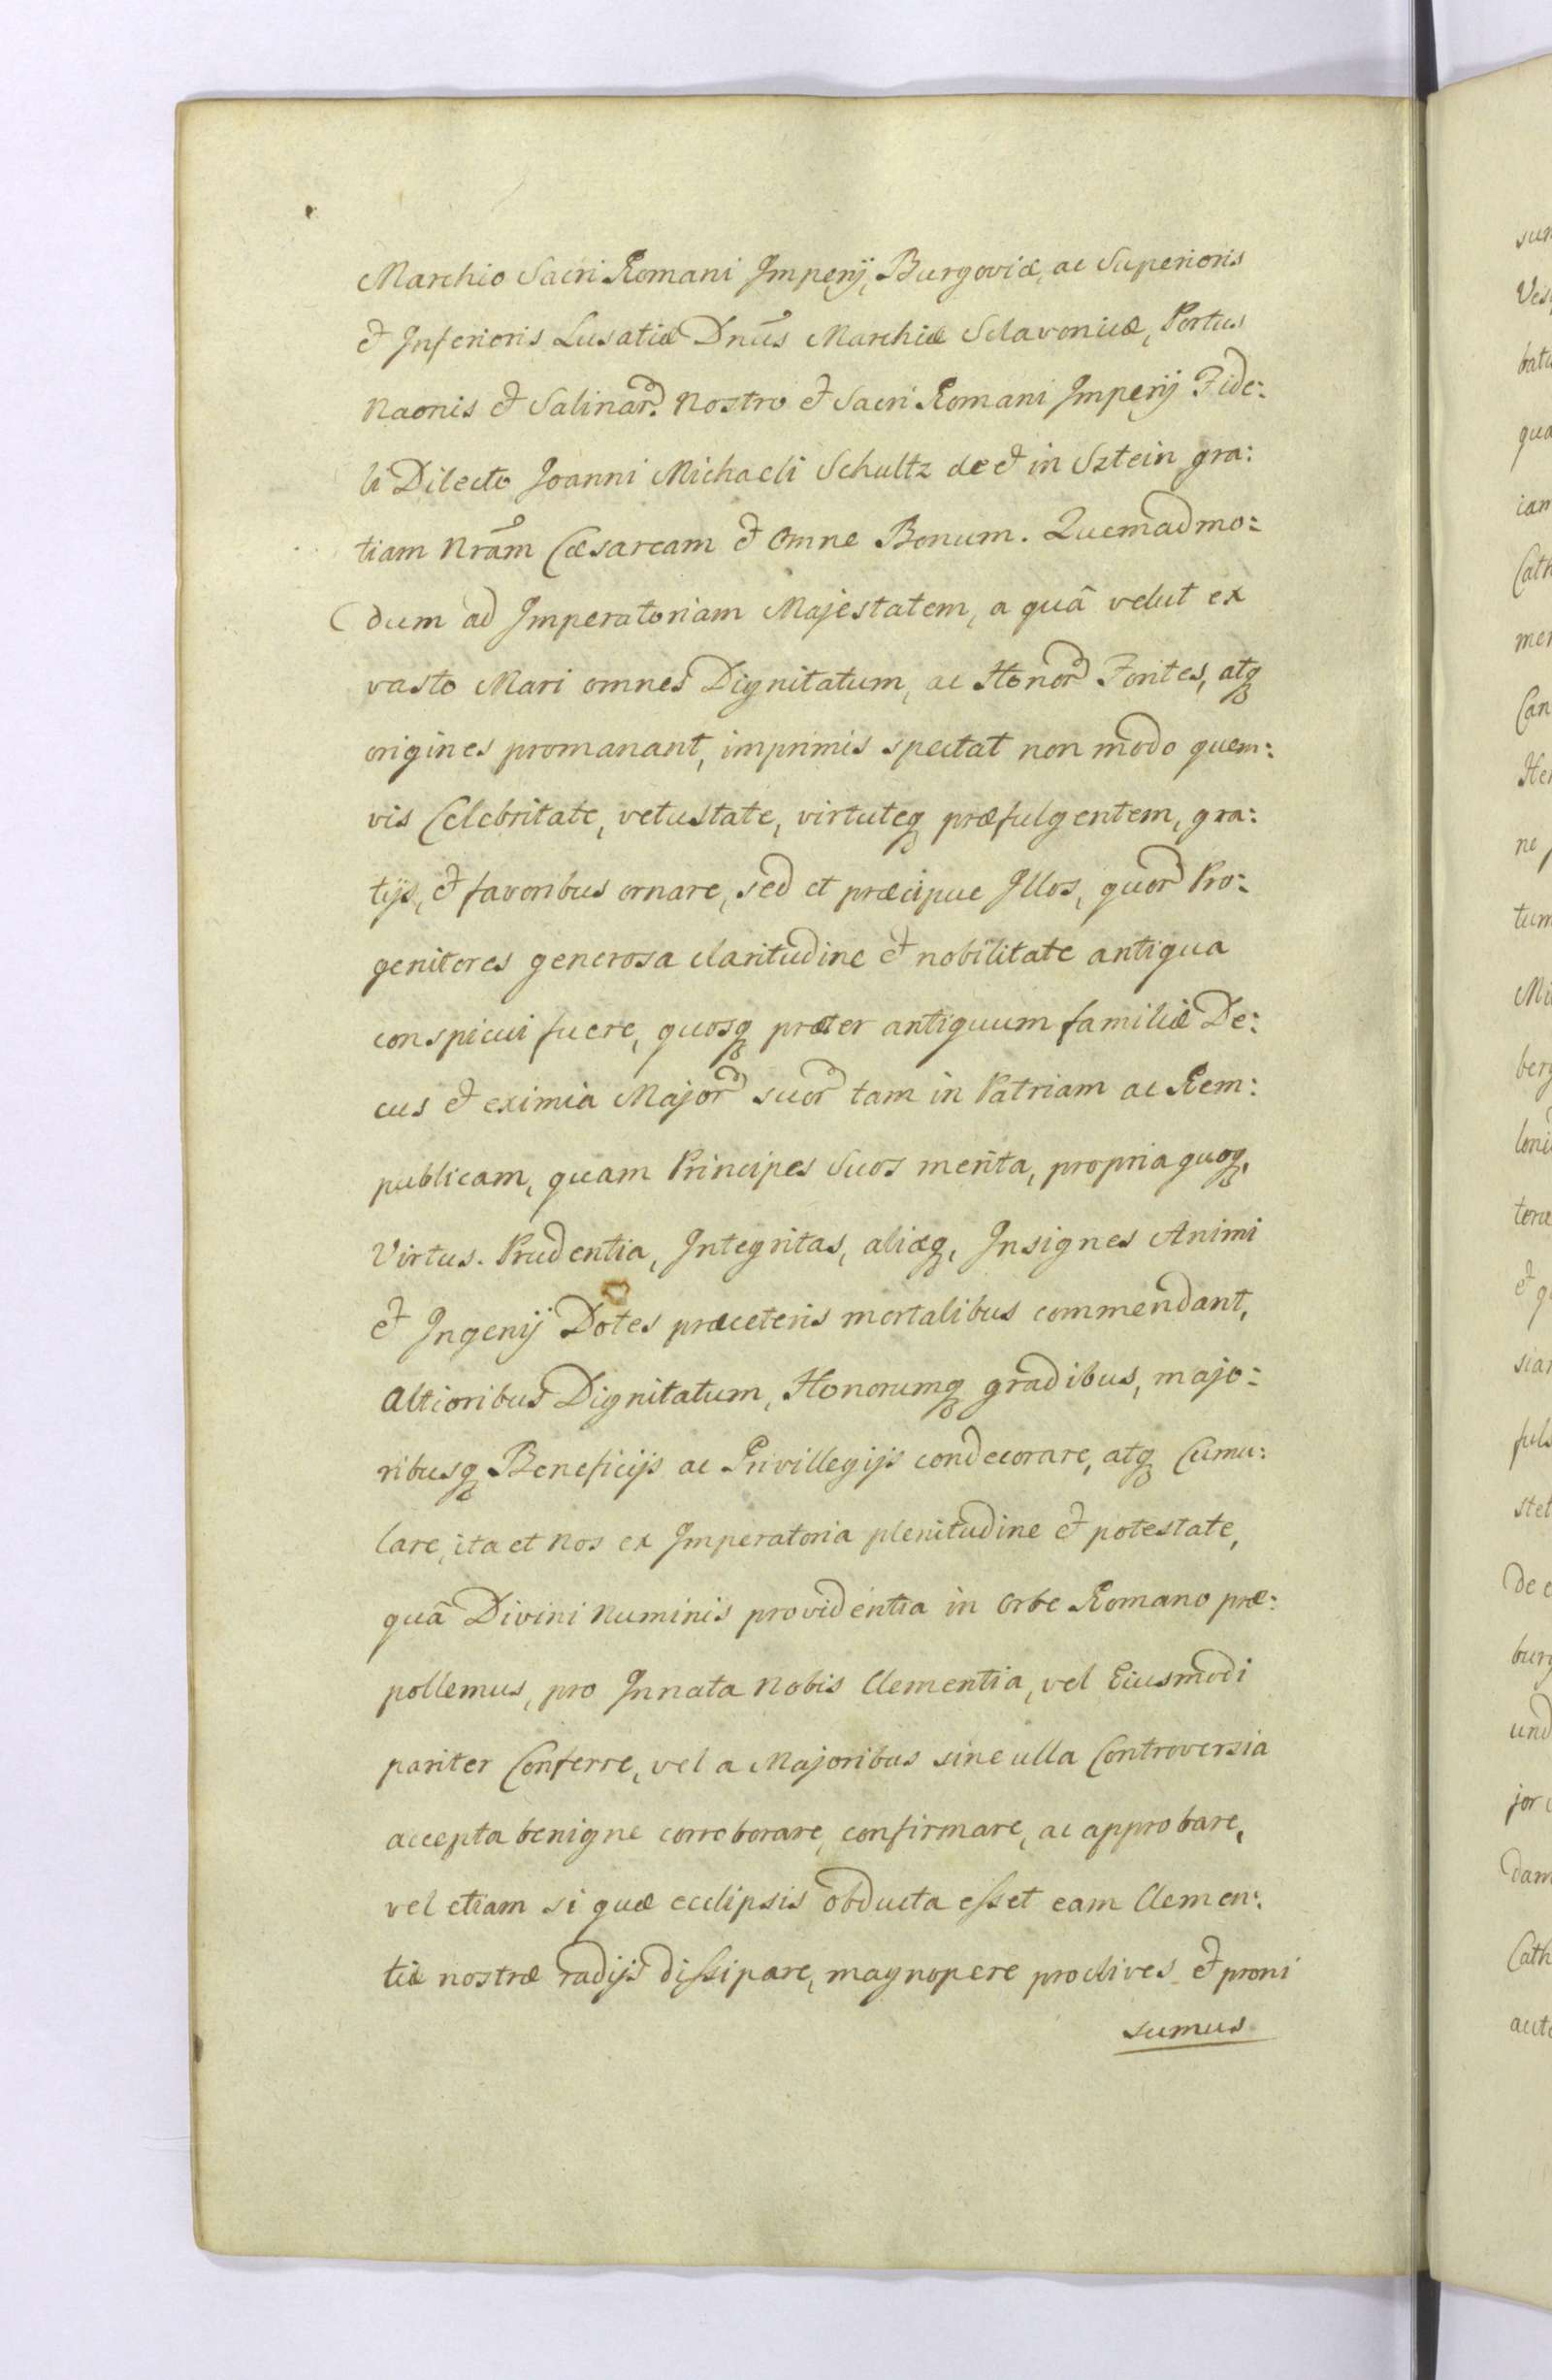 Marchio Sacri Romani Imperij, Burgoviæ, ac Superioris
& Inferioris Lusatiæ Dnūs Marchiæ Sclavonicæ, Portus
Naonis & Salinar. Nostro & Sacri Romani Imperij Fide:
li Dilecto Joanni Michaeli Schultz de & in Sztein gra:
tiam Nrām Cæsaream & Omne Bonum. Quemadmo:
dum ad Imperatoriam Majestatem, a quâ velut ex
vasto Mari omnes Dignitatum, ac Honor Fontes, atq
origines promanant, imprimis spectat non modo quem:
vis Celebritate, vetustate, virtuteq præfulgentem, gra:
tijs, & favoribus ornare, sed et præcipue Illos, quor Pro:
genitores generosa claritudine & nobilitate antiqua
conspicui fuere, quosq præter antiquum familiæ De:
cus & eximia Major suor tam in Patriam ac Rem:
publicam, quam Principes Suos merita, propria quoq,
Virtus. Prudentia, Integritas, aliæq, Insignes Animi
& Ingenij Dotes præceteris mortalibus commendant,
altioribus Dignitatum, Honorumq gradibus, majo:
ribusq Beneficijs ac Privillegijs condecorare, atq Cumu:
lare, ita et Nos ex Imperatoria plenitudine & potestate,
quâ Divini Numinis providentia in Orbe Romano præ:
pollemus, pro Innata Nobis Clementia, vel Eiusmodi
pariter Conferre, vel a Majoribus sine ulla Controversia
accepta benigne corroborare, confirmare, ac approbare,
vel etiam si quæ ecclipsis obducta esset eam Clemen:
tiæ nostræ radijs dissipare, magnopere proclives & proni
sumus